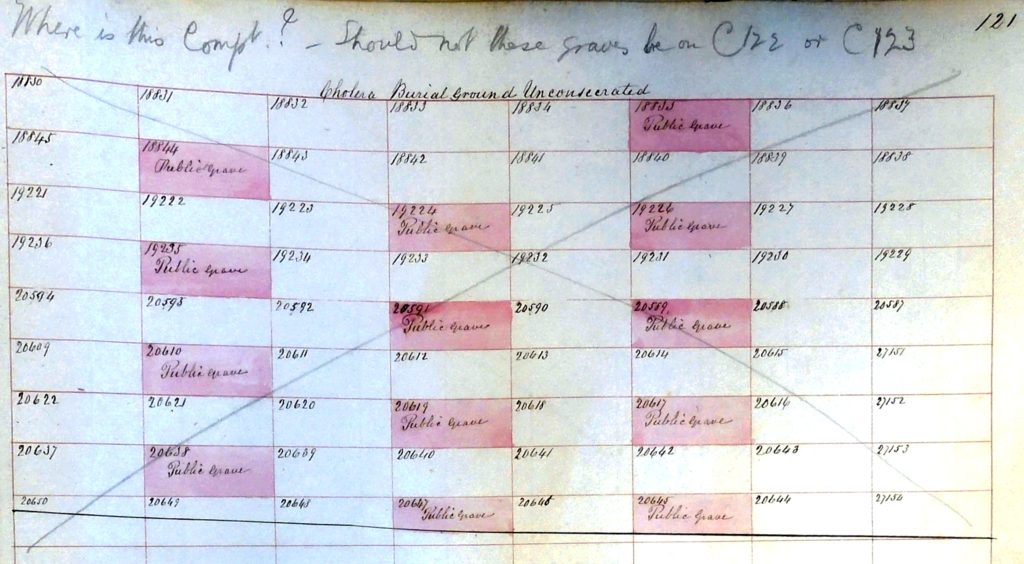 121
Where is this Compt.? - Should not these graves be on C122 or C123
Cholera Burial Ground Unconsecrated
18830 18831 18832 18833 18834 18835 18836 18837
Public Grave
18845 18844 18843 18842 18841 18840 18839 18838
Public Grave
19221 19222 19223 19224 19225 19226 19227 19228
Public Grave Public Grave
19236 19235 19234 19233 19232 19231 19230 19229
Public Grave
20594 20593 20592 20591 20590 20589 20588 20587
Public Grave Public Grave
20609 20610 20611 20612 20613 20614 20615 27151
Public Grave
20622 20621 20620 20619 20618 20617 20616 27152
Public Grave Public Grave
20637 20638 20639 20640 20641 20642 20643 27153
Public Grave
20650 20649 20648 20647 20646 20645 20644 27154
Public Grave Public Grave